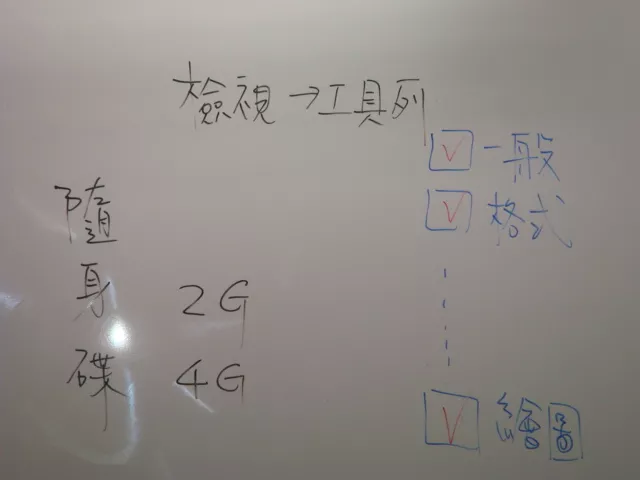 檢視→工具列
☑一般
☑格式
☑繪圖
隨身碟
2G
4G